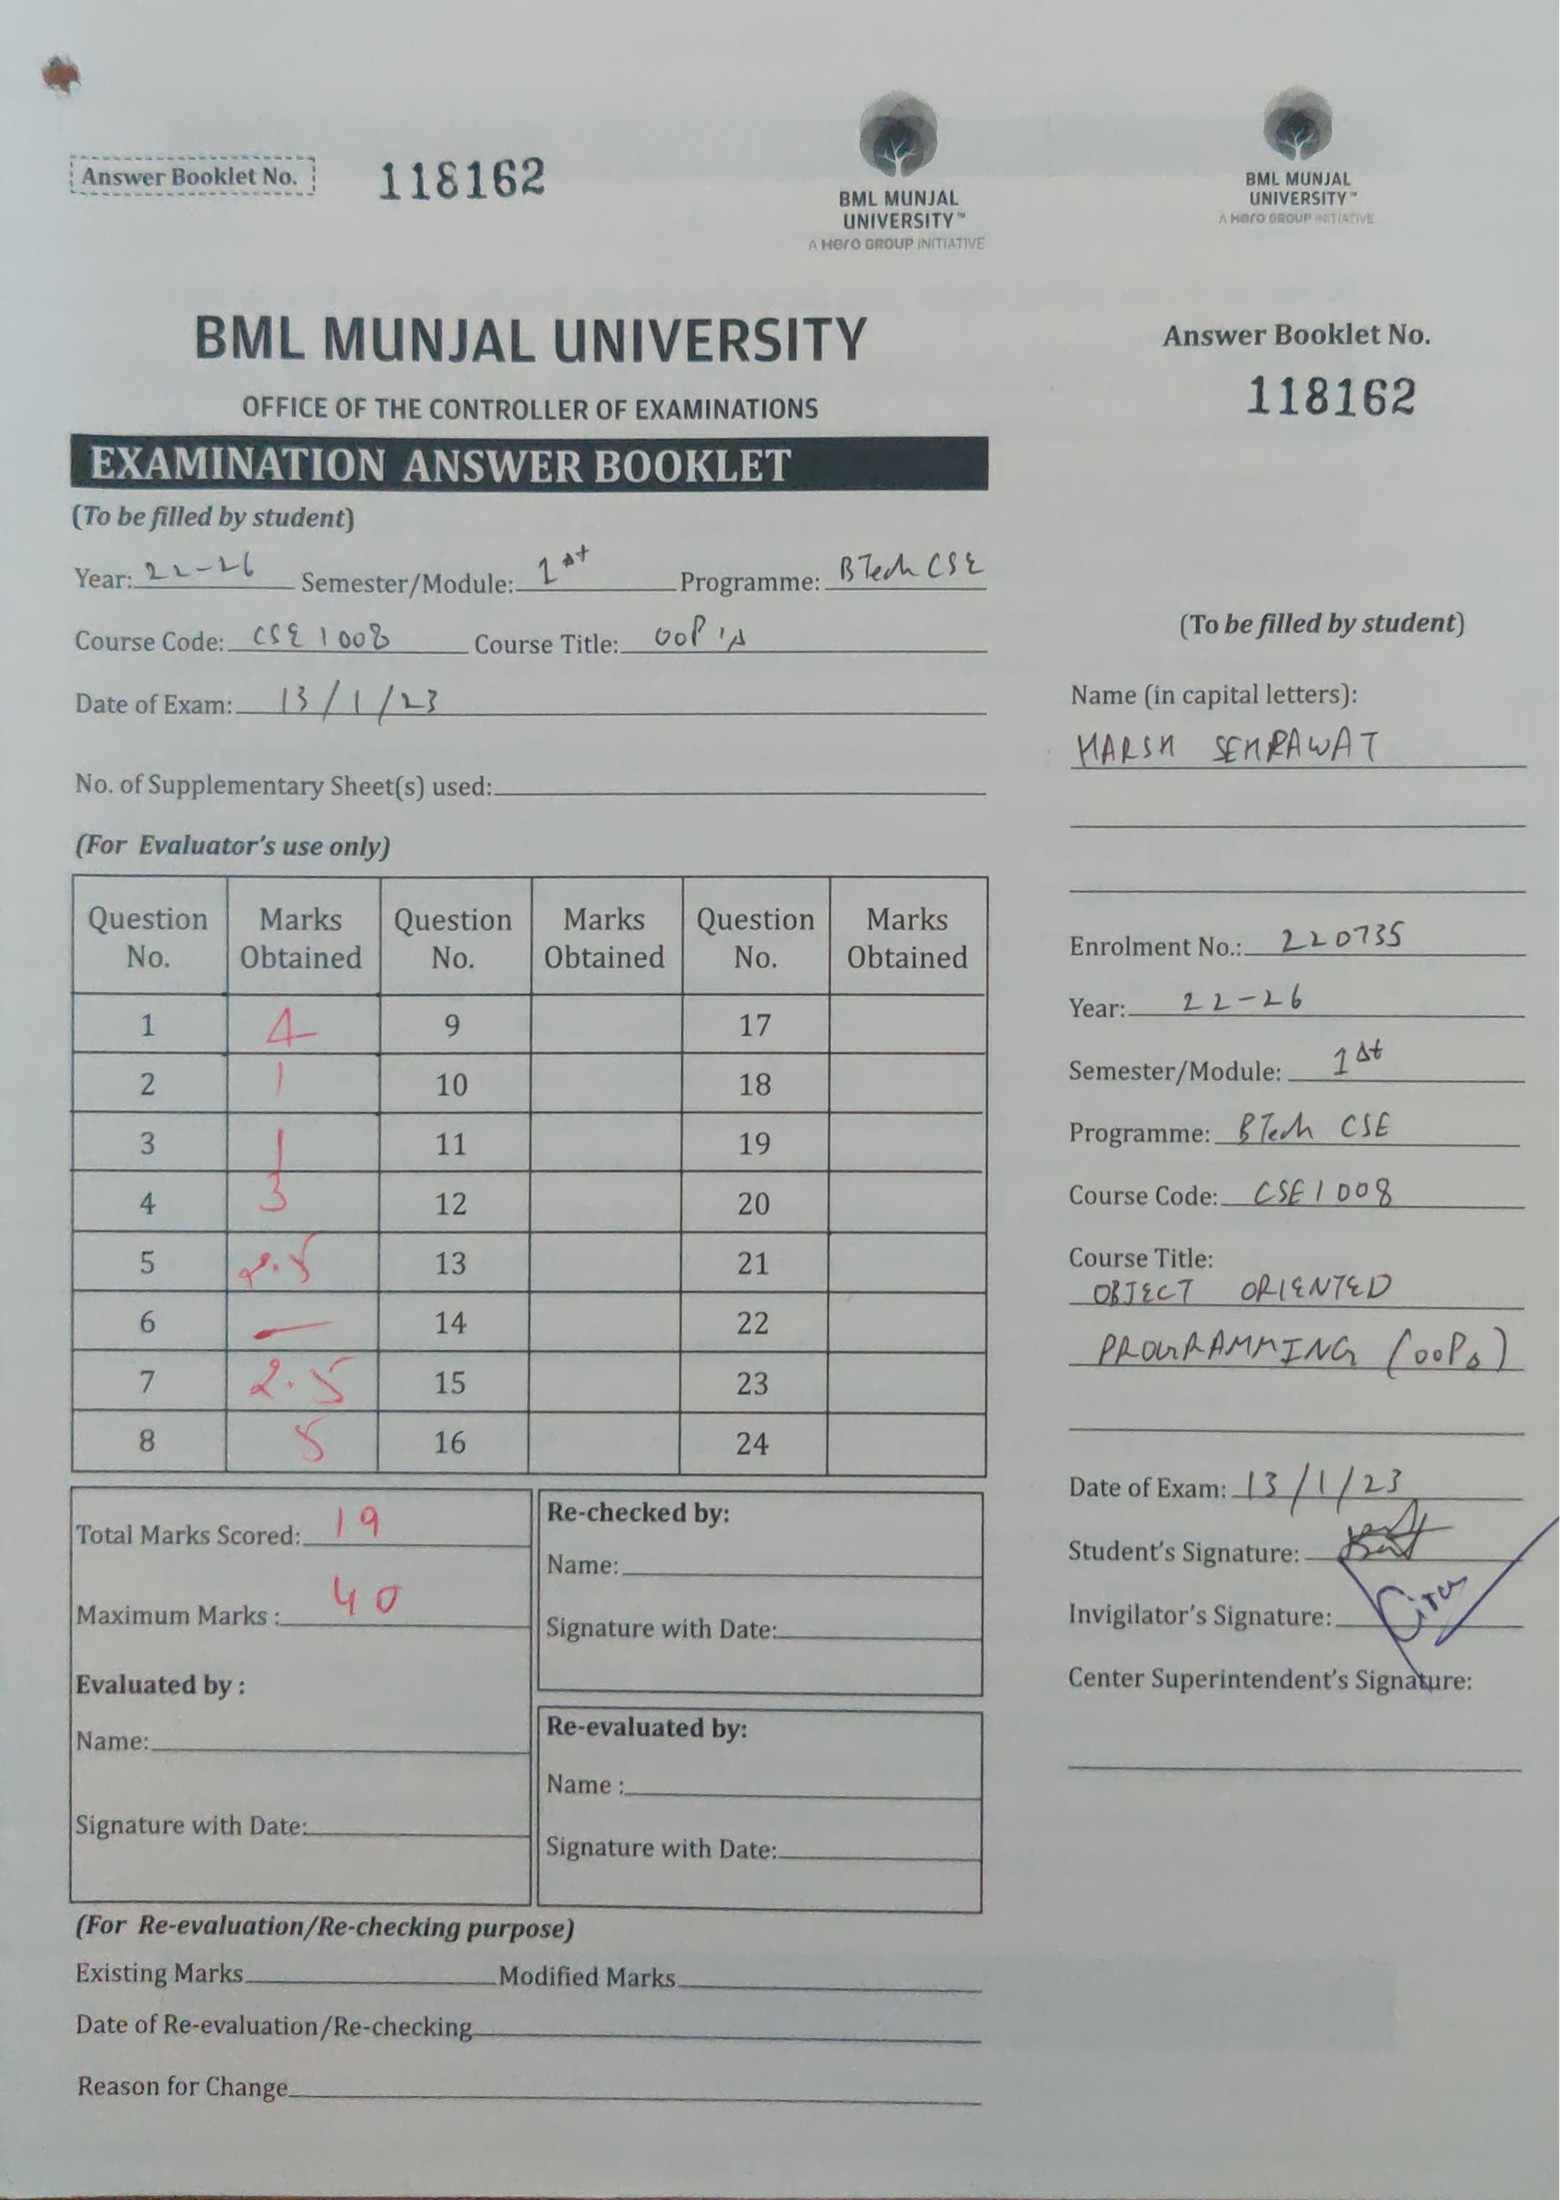 Answer Booklet No. 118162
BML MUNJAL
UNIVERSITY™
A Hero GROUP INITIATIVE
BML MUNJAL UNIVERSITY
OFFICE OF THE CONTROLLER OF EXAMINATIONS
EXAMINATION ANSWER BOOKLET
(To be filled by student)
Year: 22-26 Semester/Module: 1st Programme: BTech CSE
Course Code: CSE 1008 Course Title: OOP's
Date of Exam: 13/1/23
No. of Supplementary Sheet(s) used:
(For Evaluator's use only)
Question No. Marks Obtained Question No. Marks Obtained Question No. Marks Obtained
1 4 9 17
2 1 10 18
3 1 11 19
4 3 12 20
5 2.5 13 21
6 — 14 22
7 2.5 15 23
8 5 16 24
Total Marks Scored: 19
Maximum Marks : 40
Evaluated by :
Name:
Signature with Date:
Re-checked by:
Name:
Signature with Date:
Re-evaluated by:
Name :
Signature with Date:
(For Re-evaluation/Re-checking purpose)
Existing Marks Modified Marks
Date of Re-evaluation/Re-checking
Reason for Change
BML MUNJAL
UNIVERSITY™
A Hero GROUP INITIATIVE
Answer Booklet No.
118162
(To be filled by student)
Name (in capital letters):
HARSH SEHRAWAT
Enrolment No.: 220735
Year: 22-26
Semester/Module: 1st
Programme: BTech CSE
Course Code: CSE1008
Course Title:
OBJECT ORIENTED
PROGRAMMING (OOPs)
Date of Exam: 13/1/23
Student's Signature:
Invigilator's Signature:
Center Superintendent's Signature: